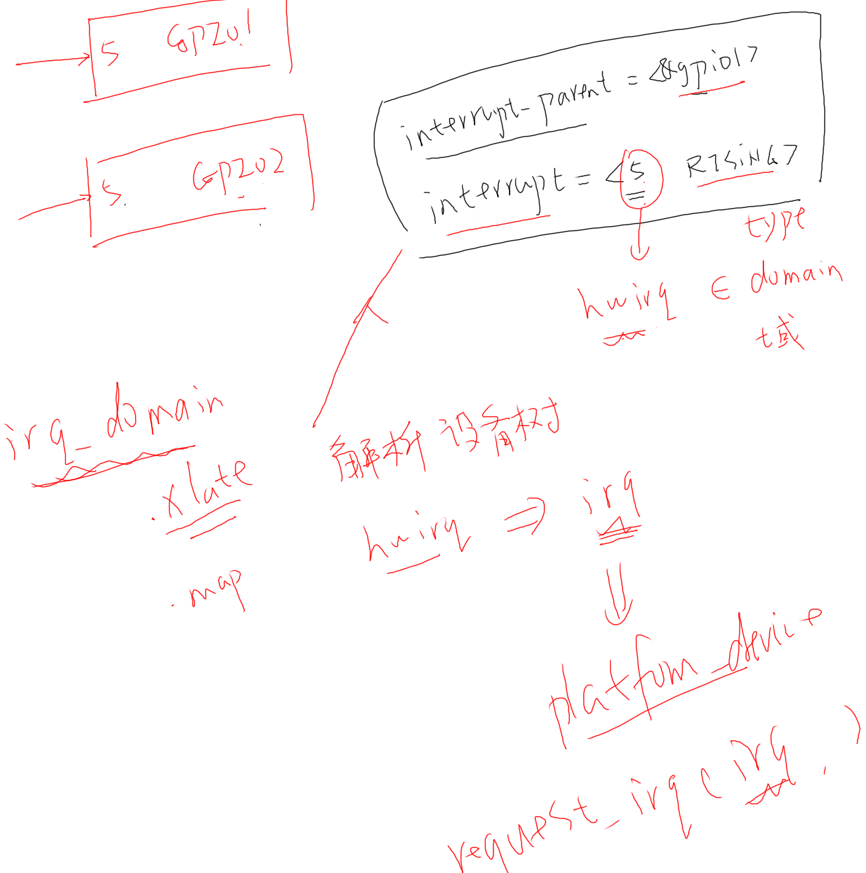 5 GPZ01
5 GPZ02
interrupt-parent = <&gpio1>
interrupt = <5 RISING>
type
hwirq ∈ domain
域
irq_domain
.xlate
.map
解析设备树
hwirq ⇒ irq
platfom_device
request_irq(irq, )